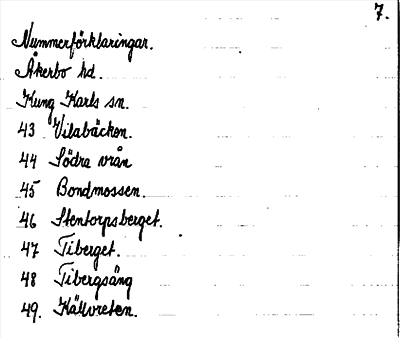 7.
Nummerförklaringar.
Åkerbo hd.
Kung Karls sn.
43 Vilabäcken.
44 Södra vrån
45 Bondmossen.
46 Stentorpsberget.
47 Tiberget.
48 Tibergsäng
49. Källvreten.